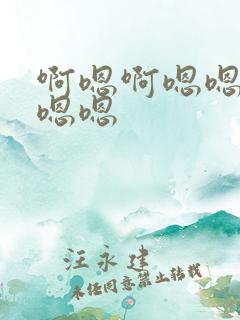 啊嗯啊嗯嗯
嗯嗯
汪永建
未经同意禁止转载